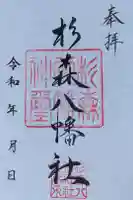 奉拝
杉森八幡社
令和 年 月 日